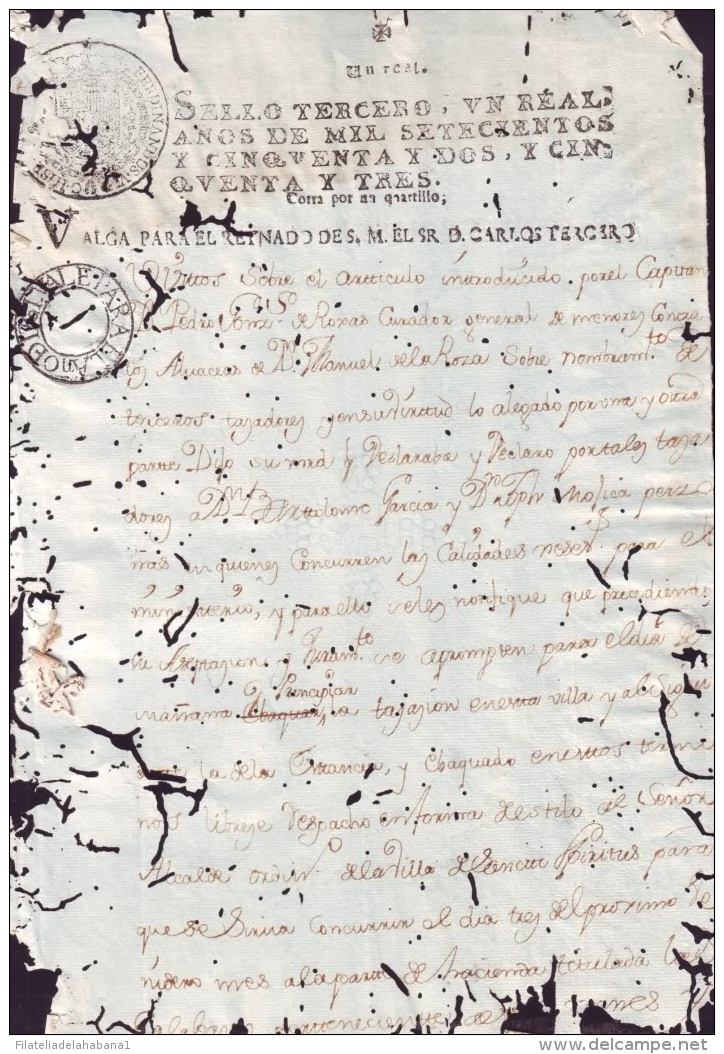 Un real.
SELLO TERCERO, VN REAL:
AÑOS DE MIL SETECIENTOS
Y CINQVENTA Y DOS, Y CIN-
QVENTA Y TRES.
Corra por un quartillo;
VALGA PARA EL REYNADO DE S. M. EL SR D. CARLOS TERCERO
FERDINANDUS VI
VALE PARA EL AÑO D
Vistos Sobre el articulo introducido por el Capitan
Dn Pedro de Roxas Curador general de menores
los Alvaceas de Dn Manuel de la Roza Sobre nombramto de
terceros tazadores y en su virttud lo alegado por una y otra
partte Dijo su mrd q Declaraba y Declaro por tales taza
dores a Dn Barttolome Garcia y Dn Joph Mosica perzo
nas en quienes Concurren las Calidades neses para el
ministerio, y para ello se les nottifique que precediendo
su Aseptasion y Juramto se apromptten para el dia de
Principiar
mañana la tazasion en estta villa y al Sigui
la de la Esttancia, y Ebaquado en esttos termi
nos librese Despacho en forma de estilo al Señor
Alcalde ordino de la Villa de Sancti Spiritus para
que se Sirva Concurrir el dia tres del proximo Ve
nidero mes a la partte de hacienda tittulada